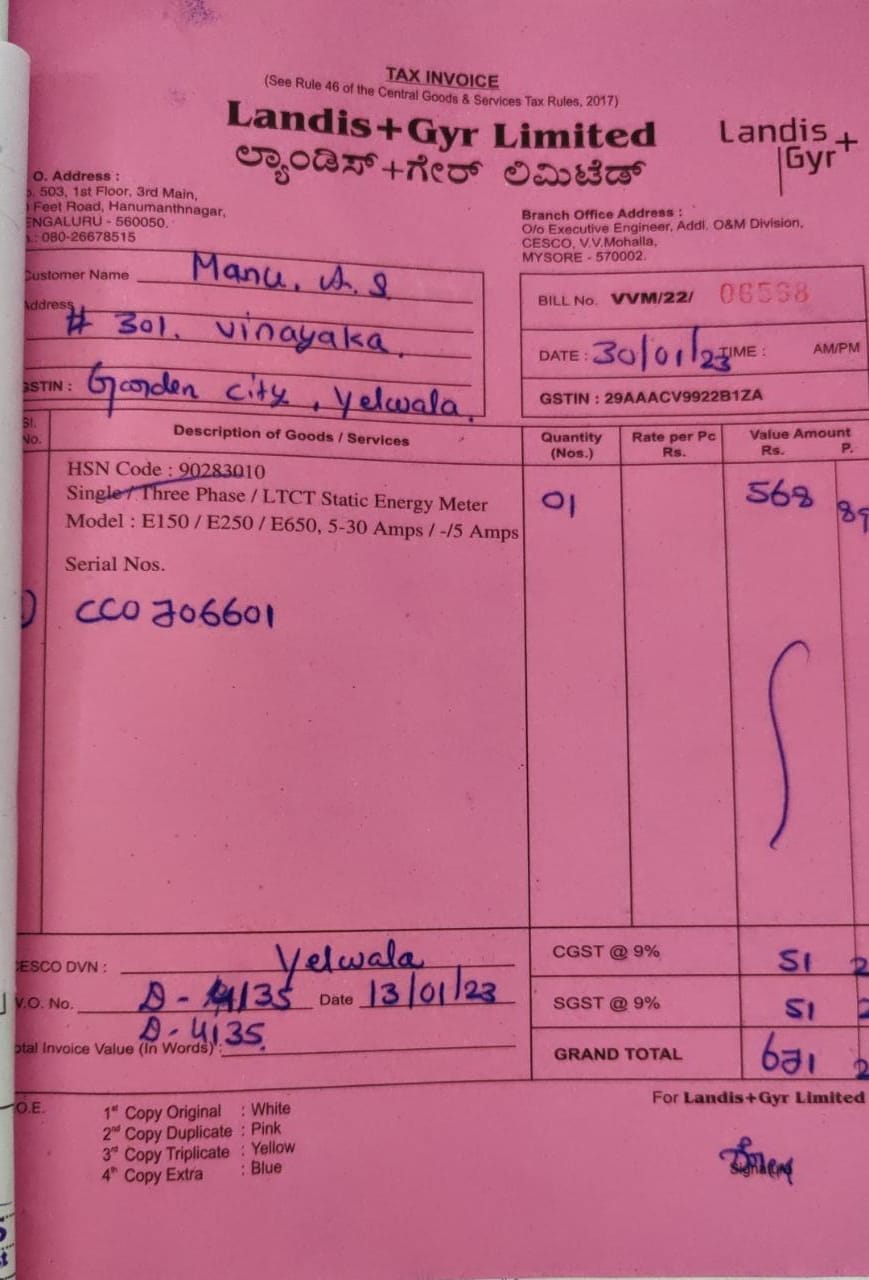 TAX INVOICE
(See Rule 46 of the Central Goods & Services Tax Rules, 2017)
Landis+Gyr Limited
ಲ್ಯಾಂಡಿಸ್+ಗೇರ್ ಲಿಮಿಟೆಡ್
Landis
Gyr+
O. Address :
503, 1st Floor, 3rd Main,
Feet Road, Hanumanthnagar,
ENGALURU - 560050.
: 080-26678515
Branch Office Address :
O/o Executive Engineer, Addl. O&M Division,
CESCO, V.V.Mohalla,
MYSORE - 570002.
Customer Name Manu. A. S
Address # 301. Vinayaka.
GSTIN : Garden city, Yelwala.
BILL No. VVM/22/ 06568
DATE : 30/01/23 TIME : AM/PM
GSTIN : 29AAACV9922B1ZA
Sl. No. Description of Goods / Services Quantity (Nos.) Rate per Pc Rs. Value Amount Rs. P.
HSN Code : 90283010
Single / Three Phase / LTCT Static Energy Meter 01 568 89
Model : E150 / E250 / E650, 5-30 Amps / -/5 Amps
Serial Nos.
CC0706601
CESCO DVN : Yelwala
CGST @ 9% 51 2
V.O. No. D-4135 Date 13/01/23
D-4135.
SGST @ 9% 51 2
otal Invoice Value (In Words) :
GRAND TOTAL 671 2
O.E.
For Landis+Gyr Limited
1st Copy Original : White
2nd Copy Duplicate : Pink
3rd Copy Triplicate : Yellow
4th Copy Extra : Blue